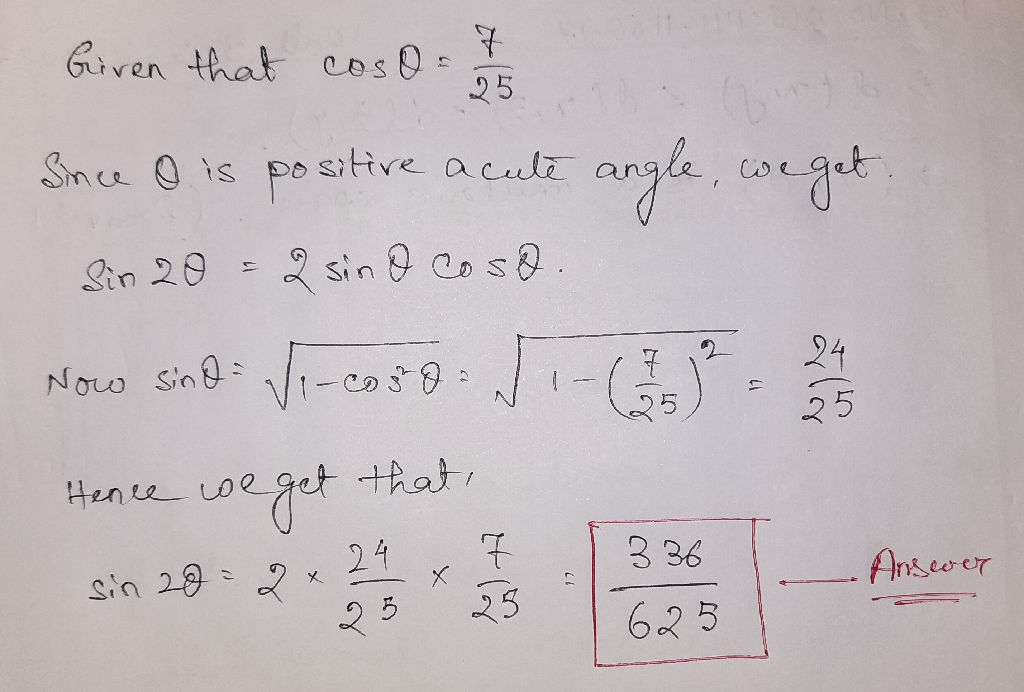 Given that cos θ = 7/25
Since θ is positive acute angle, we get.
Sin 2θ = 2 sin θ cos θ.
Now sin θ = √(1-cos²θ) = √(1-(7/25)²) = 24/25
Hence we get that,
sin 2θ = 2 × 24/25 × 7/25 = 336/625 ← Answer